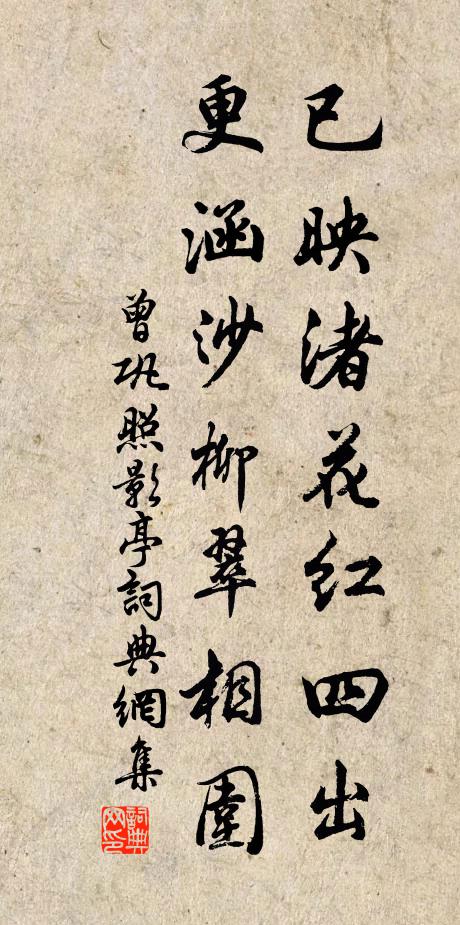 已映渚花紅四出
更涵沙柳翠相圍
曾巩照影亭詞典網集
詞典网印